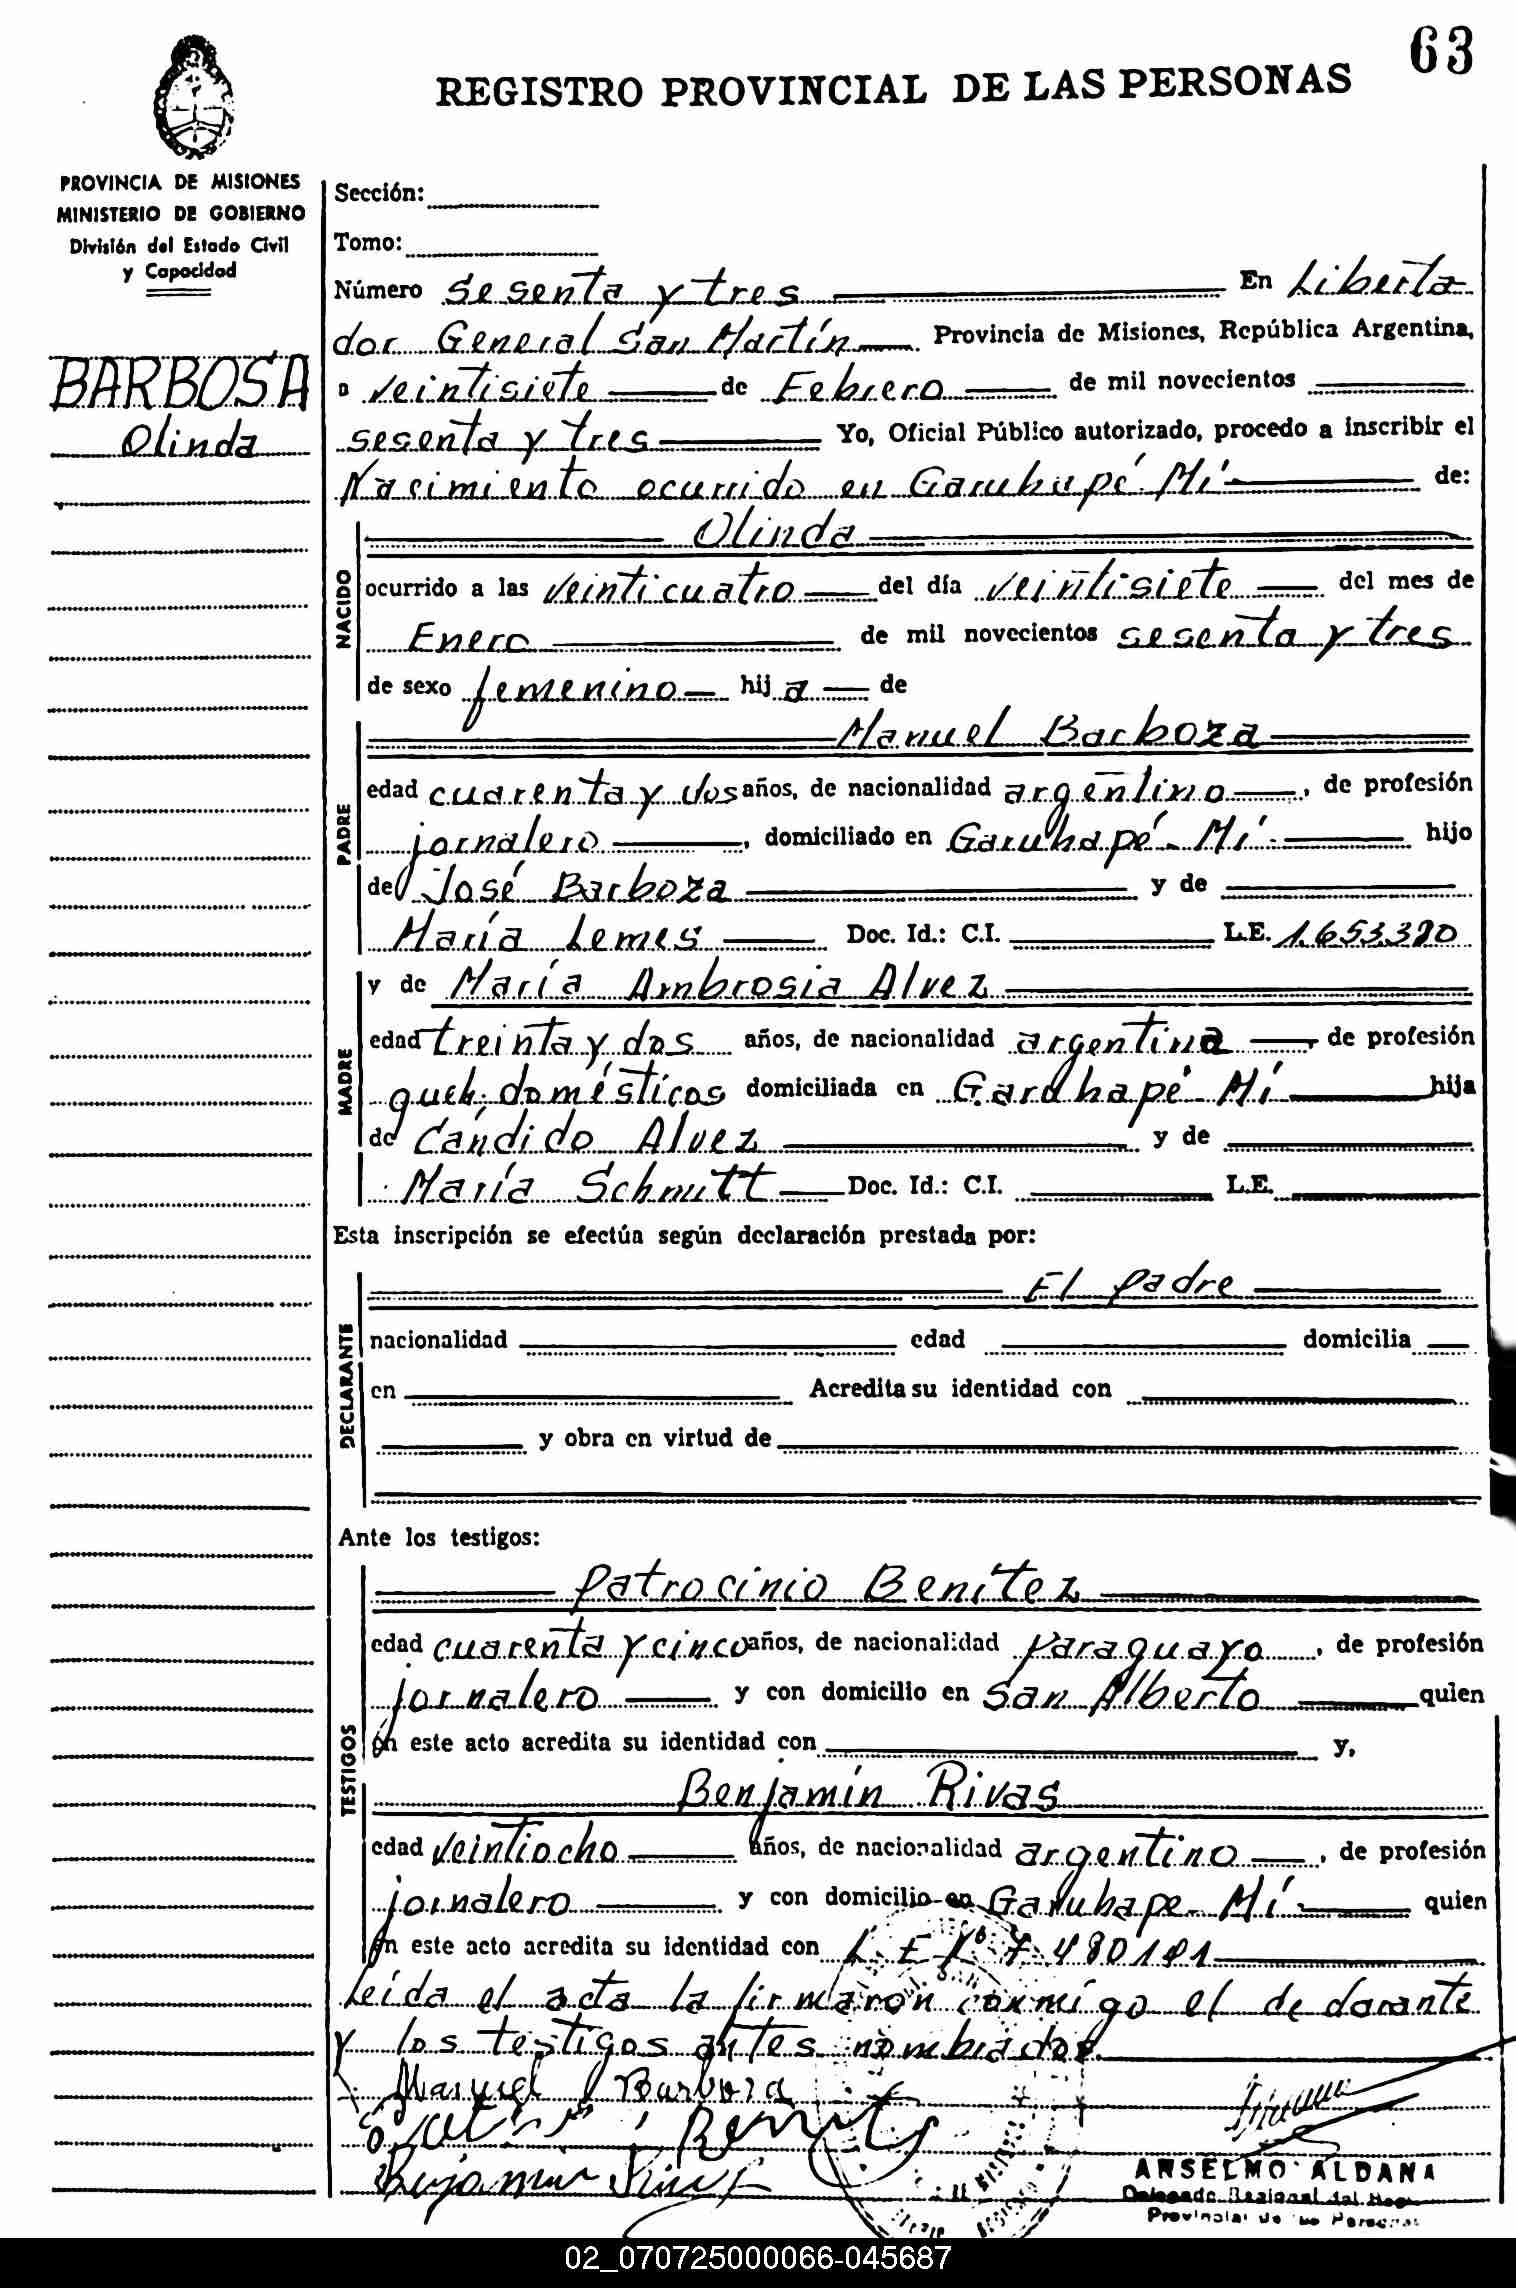 63
REGISTRO PROVINCIAL DE LAS PERSONAS
PROVINCIA DE MISIONES
MINISTERIO DE GOBIERNO
División del Estado Civil
y Capacidad
BARBOSA
Olinda
Sección:
Tomo:
Número sesenta y tres En Liberta
dor General San Martín Provincia de Misiones, República Argentina,
a veintisiete de Febrero de mil novecientos
sesenta y tres Yo, Oficial Público autorizado, procedo a inscribir el
Nacimiento ocurrido en Garuhapé-Mí de:
NACIDO
Olinda
ocurrido a las veinticuatro del día veintisiete del mes de
Enero de mil novecientos sesenta y tres
de sexo femenino hija de
PADRE
Manuel Barboza
edad cuarenta y dos años, de nacionalidad argentino, de profesión
jornalero, domiciliado en Garuhapé-Mí hijo
de José Barboza y de
María Lemes Doc. Id.: C.I. L.E.
MADRE
y de María Ambrosia Alvez
edad treinta y dos años, de nacionalidad argentina, de profesión
queh. domésticos domiciliada en Garuhapé-Mí hija
de Cándido Alvez y de
María Schmitt Doc. Id.: C.I. L.E.
Esta inscripción se efectúa según declaración prestada por:
DECLARANTE
El padre
nacionalidad edad domicilia
en Acredita su identidad con
y obra en virtud de
Ante los testigos:
TESTIGOS
Patrocinio Benítez
edad cuarenta y cinco años, de nacionalidad paraguayo, de profesión
jornalero y con domicilio en San Alberto quien
en este acto acredita su identidad con y,
Benjamín Rivas
edad veintiocho años, de nacionalidad argentino, de profesión
jornalero y con domicilio en Garuhape-Mí quien
en este acto acredita su identidad con L E Nº
Leída el acta la firmaron conmigo el declarante
y los testigos antes nombrados.
Manuel Barboza
ANSELMO ALDANA
Delegado Regional del Reg.
Provincial de las Personas
02_070725000066-045687